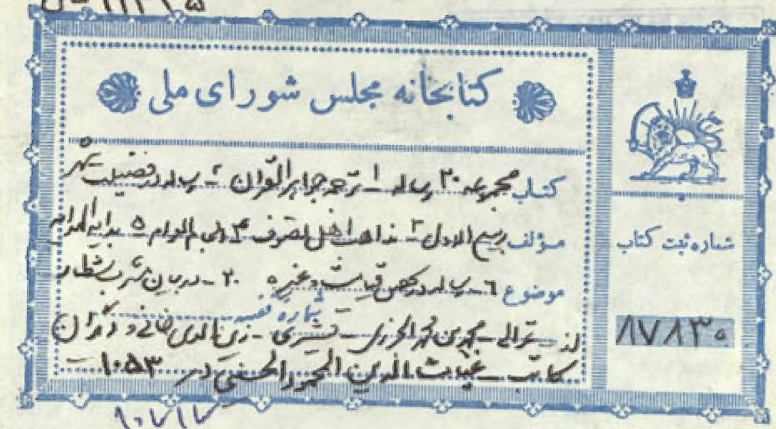 کتابخانه مجلس شورای ملی
کتاب مجموعه ۲۰ رساله ۱ ترجمه جواهر القرآن ۲ - رساله در فضیلت شهر
مؤلف ربیع الاول ۳ - مذاهب اهل تصوف ۴ الجام العوام ۵ بدایة الهدایه
موضوع ۶ - رساله در قیامت و غیره ۲۰ - در بیان مشرب شطار
شماره قفسه
از غزالی - محمد بن محمد الجزری - قشیری - زین الدین خافی و دیگران
کاتب - غیاث الدین المحمود الحسنی در ۱۰۵۳
شماره ثبت کتاب
۸۷۸۳۰